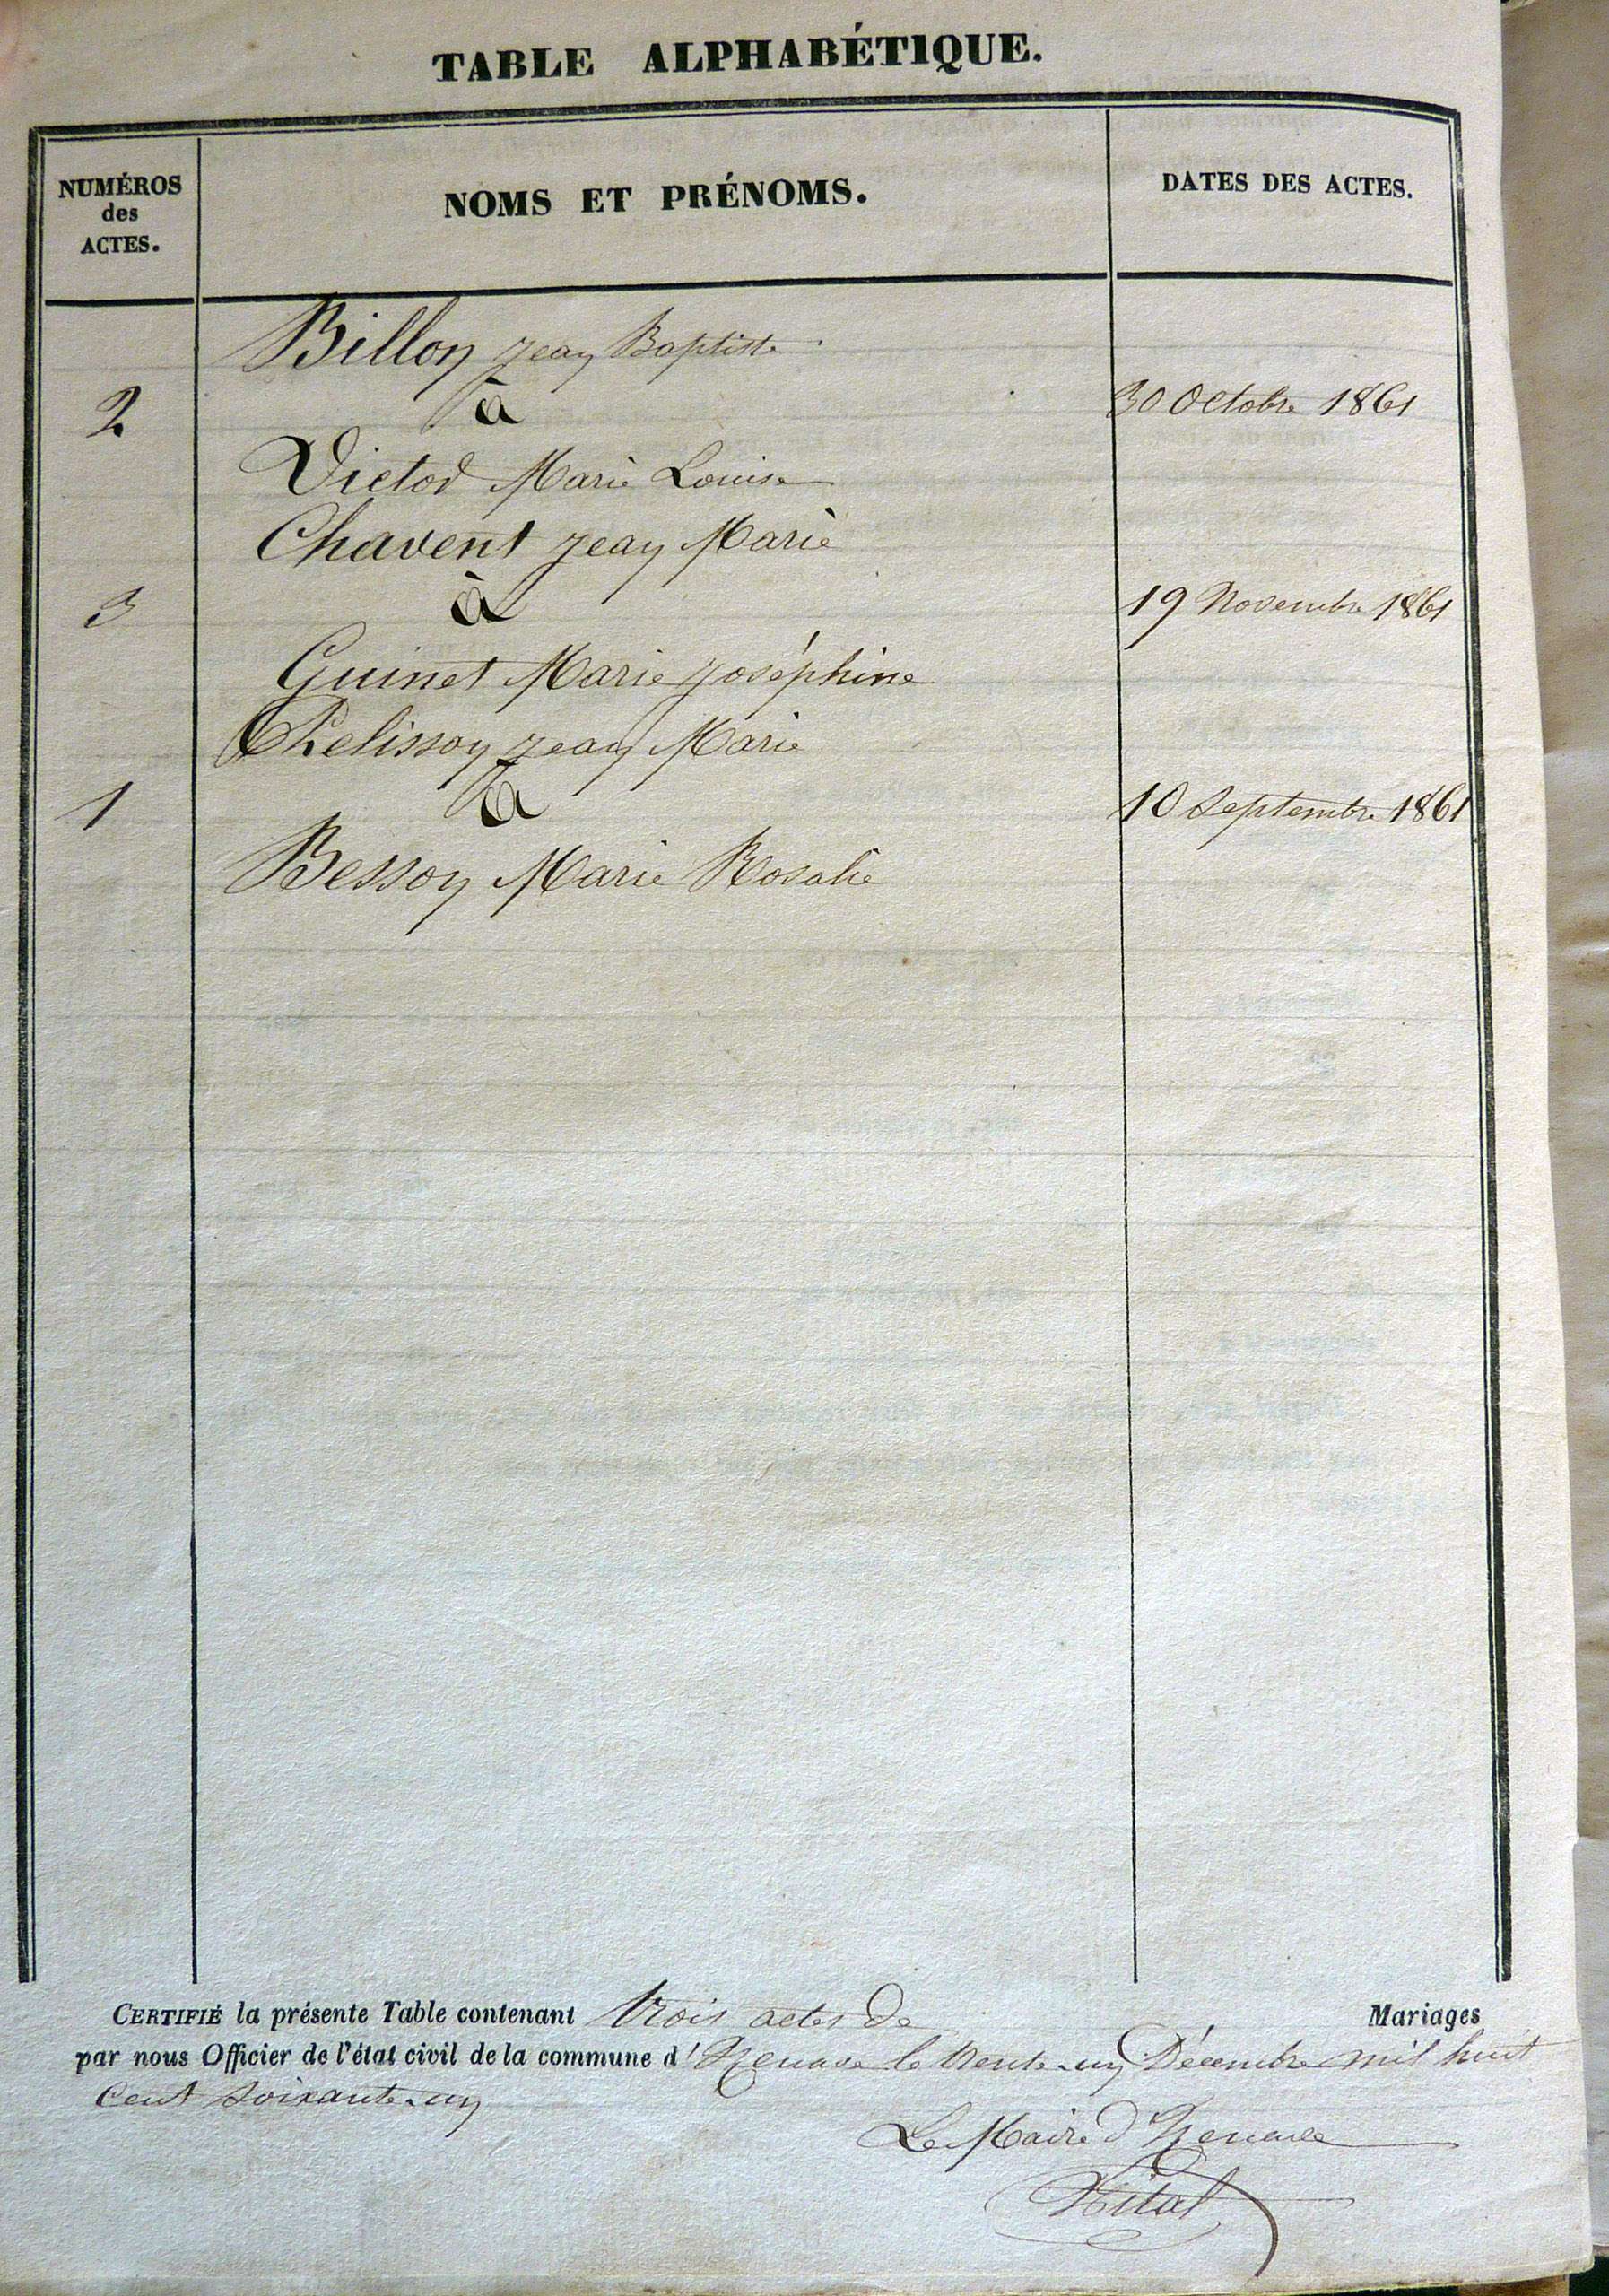 TABLE ALPHABÉTIQUE.
NUMÉROS
des
ACTES.
NOMS ET PRÉNOMS.
DATES DES ACTES.
Billon Jean Baptiste
2 à 30 Octobre 1861
Victod Marie Louise
Chavent Jean Marie
3 à 19 Novembre 1861
Guinet Marie Joséphine
Pelisson Jean Marie
1 à 10 Septembre 1861
Besson Marie Rosalie
CERTIFIÉ la présente Table contenant trois actes de Mariages
par nous Officier de l'état civil de la commune d' le trente-un Décembre mil huit
cent soixante-un
Le Maire d'
Vital